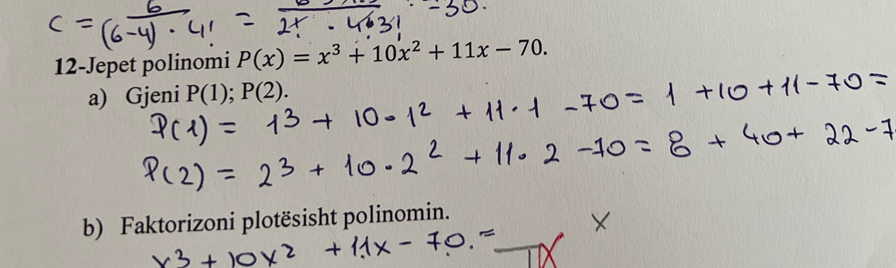 C = 6 / (6-4) · 4! = 2! · 4! 3! = 30.
12-Jepet polinomi P(x) = x³ + 10x² + 11x − 70.
a) Gjeni P(1); P(2).
P(1) = 1³ + 10·1² + 11·1 -70 = 1 +10 +11-70=
P(2) = 2³ + 10·2² + 11·2 -70 = 8 + 40+ 22-7
b) Faktorizoni plotësisht polinomin.
x
x3 + 10x2 + 11x - 70. =